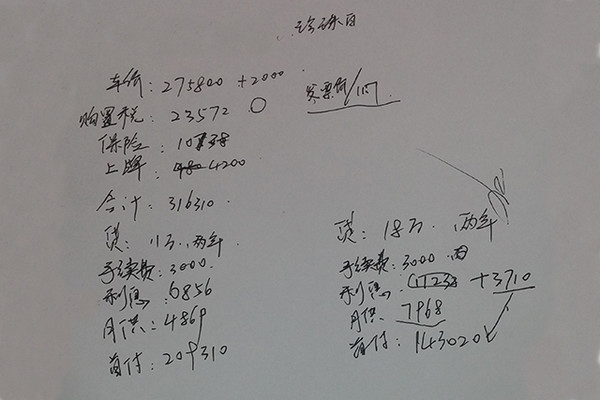 珍珠白
车价：275800 +2000
发票价/117
购置税：23572
保险：10738
上牌：4200
合计：316310
贷：11万、两年
手续费：3000
利息：6856
月供：4869
首付：209310
贷：18万、两年
手续费：3000
利息：11238 +3710
月供：7968
首付：143020